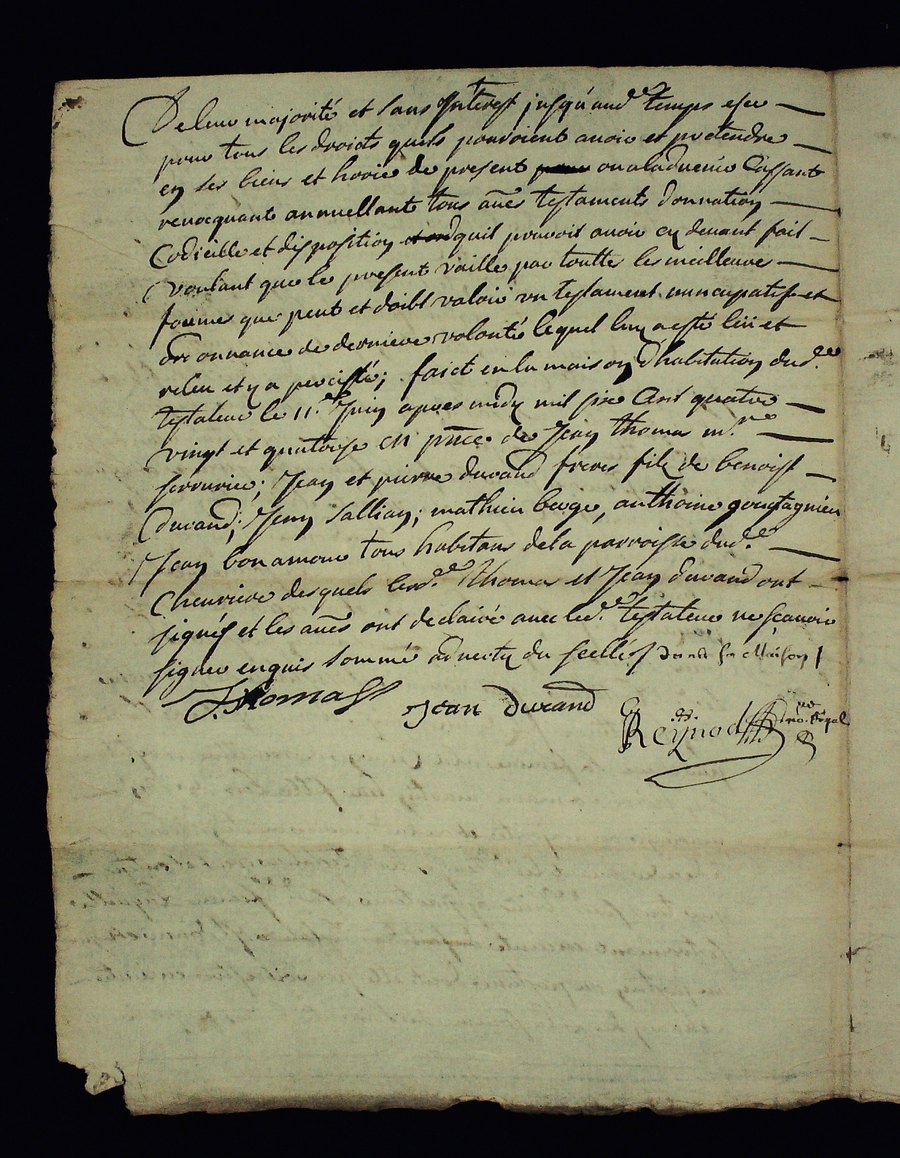 De leur majorité et sans Interest jusqu'aud.e temps et ce
pour tous les droicts quels pourroient avoir et pretendre
en ses biens et hoirie de present ou a ladvenir Cassant
revocquant annuellant tous au.es testaments donnation
Codicille et disposition quil pouvoit avoir cy devant fait
voulant que le present vaille par touttes les meilleures
formes que peut et doibt valoir un testament nuncupatif et
ordonnance de derniere volonté lequel luy a esté leü et
releu et y a percisté; faict en la maison d'habitation dud.e
testateur le 11.e Juin apres midy mil six Cent quatre
vingt et quatorse en p.nce de Jean thomas m.re
serrurier; Jean et pierre durand freres filz de benoist
durand; Jean sallian; mathieu berge, anthoine
Jean bonamour tous habitans de la parroisse dud.e
Chevrieres desquels lesd.e thomas et Jean durand ont
signés et les au.es ont declairé avec led.e testateur ne scavoir
signer enquis sommé adverty du scellé
J. Thomas
Jean Durand
Reynod no.re Royal